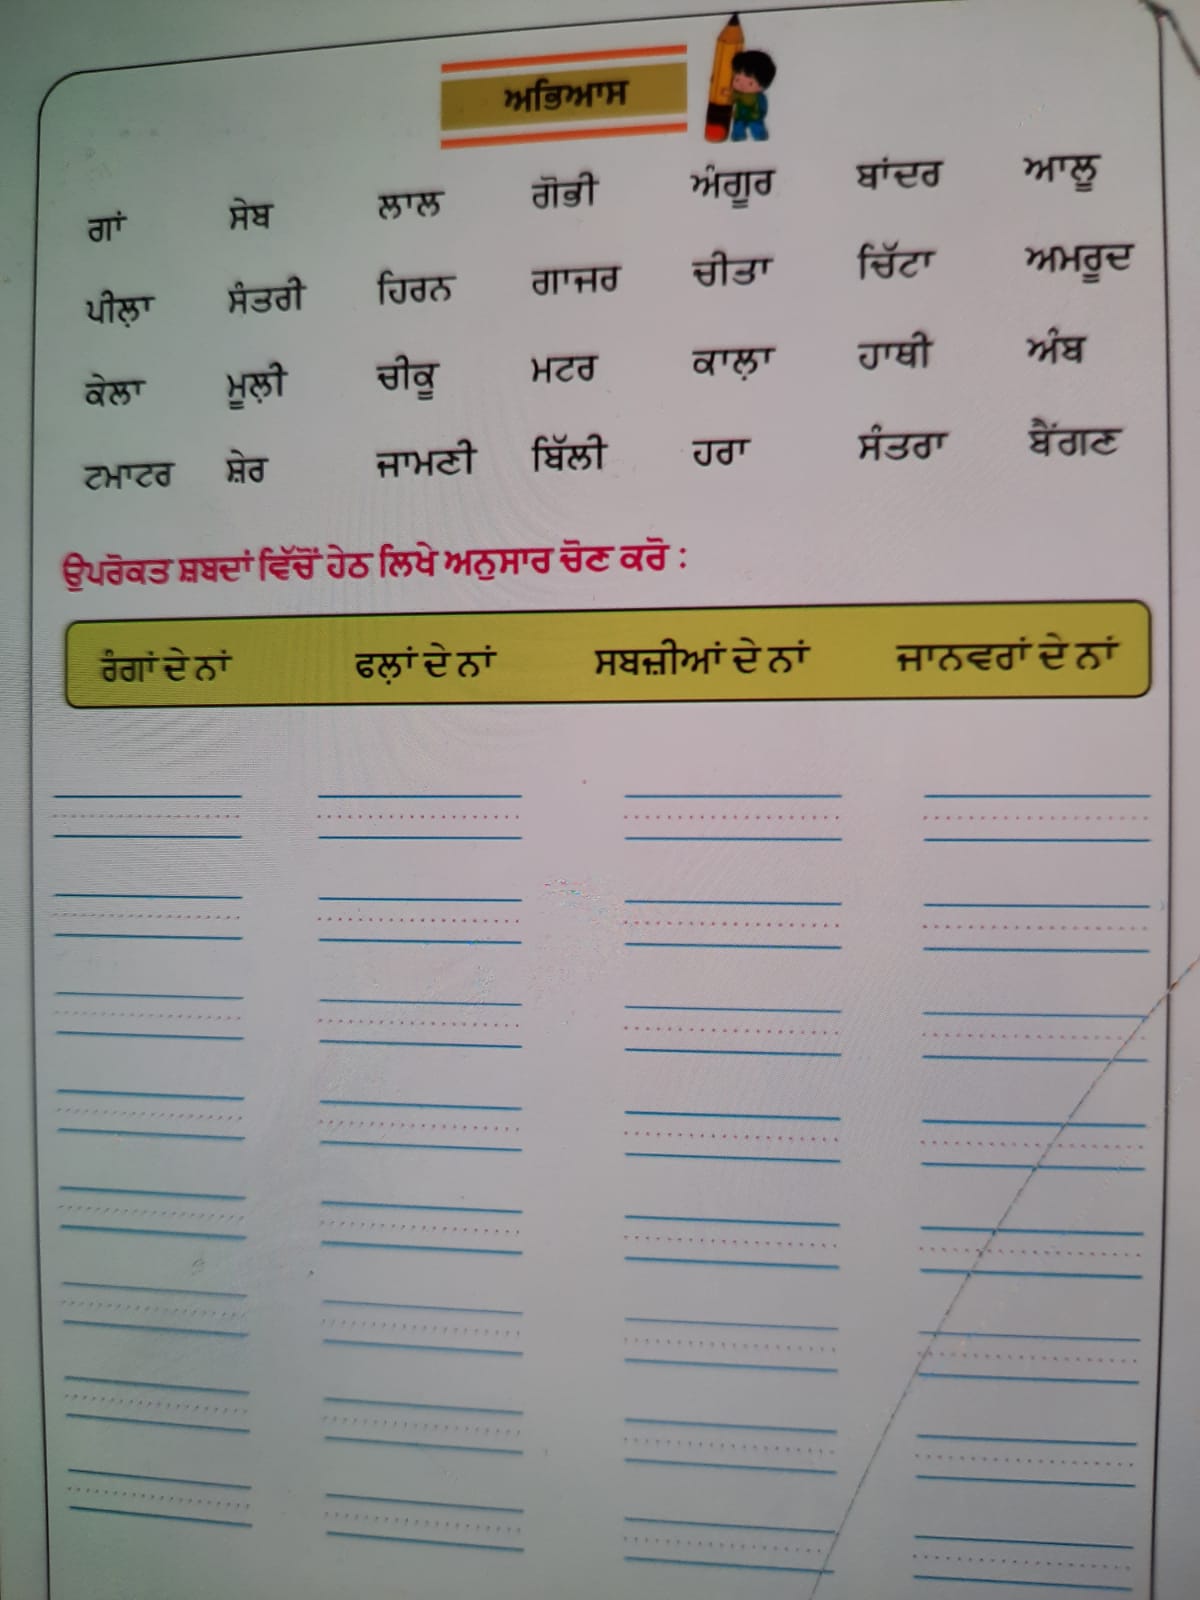 ਅਭਿਆਸ
ਗਾਂ ਸੇਬ ਲਾਲ ਗੋਭੀ ਅੰਗੂਰ ਬਾਂਦਰ ਆਲੂ
ਪੀਲ਼ਾ ਸੰਤਰੀ ਹਿਰਨ ਗਾਜਰ ਚੀਤਾ ਚਿੱਟਾ ਅਮਰੂਦ
ਕੇਲਾ ਮੂਲ਼ੀ ਚੀਕੂ ਮਟਰ ਕਾਲ਼ਾ ਹਾਥੀ ਅੰਬ
ਟਮਾਟਰ ਸ਼ੇਰ ਜਾਮਣੀ ਬਿੱਲੀ ਹਰਾ ਸੰਤਰਾ ਬੈਂਗਣ
ਉਪਰੋਕਤ ਸ਼ਬਦਾਂ ਵਿੱਚੋਂ ਹੇਠ ਲਿਖੇ ਅਨੁਸਾਰ ਚੋਣ ਕਰੋ :
ਰੰਗਾਂ ਦੇ ਨਾਂ ਫਲ਼ਾਂ ਦੇ ਨਾਂ ਸਬਜ਼ੀਆਂ ਦੇ ਨਾਂ ਜਾਨਵਰਾਂ ਦੇ ਨਾਂ